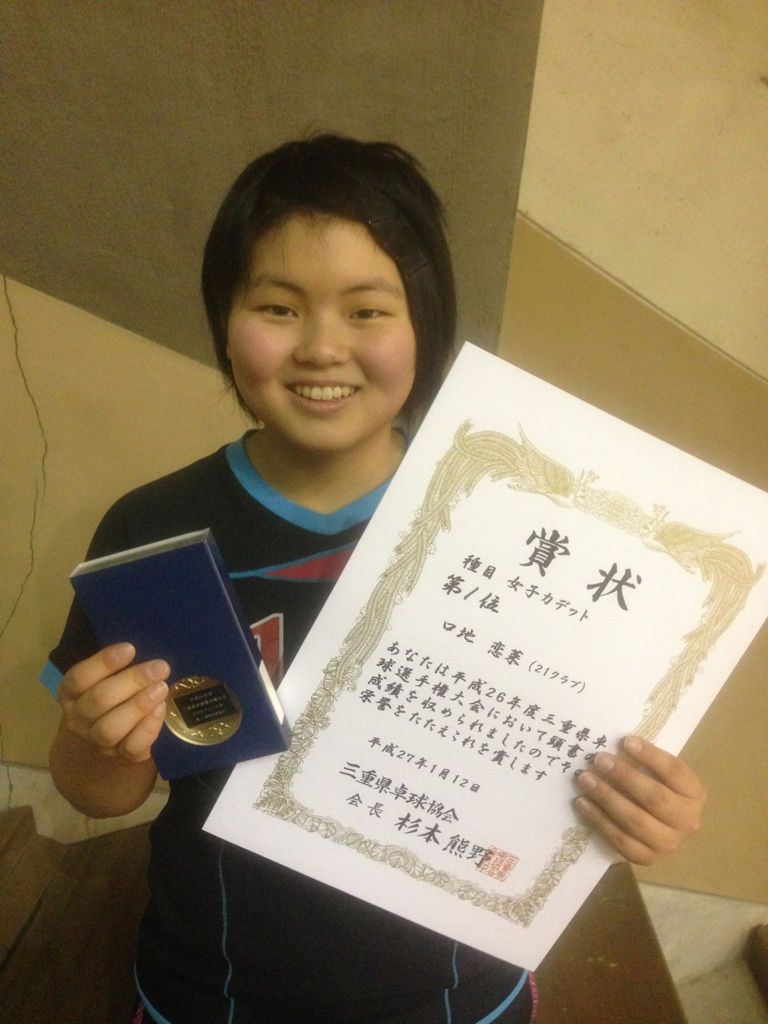 賞状
種目 女子カデット
第1位
口地 恋菜 (21クラブ)
あなたは平成26年度三重県卓
球選手権大会において頭書の
成績を収められましたのでその
栄誉をたたえこれを賞します
平成27年1月12日
三重県卓球協会
会長 杉本熊野